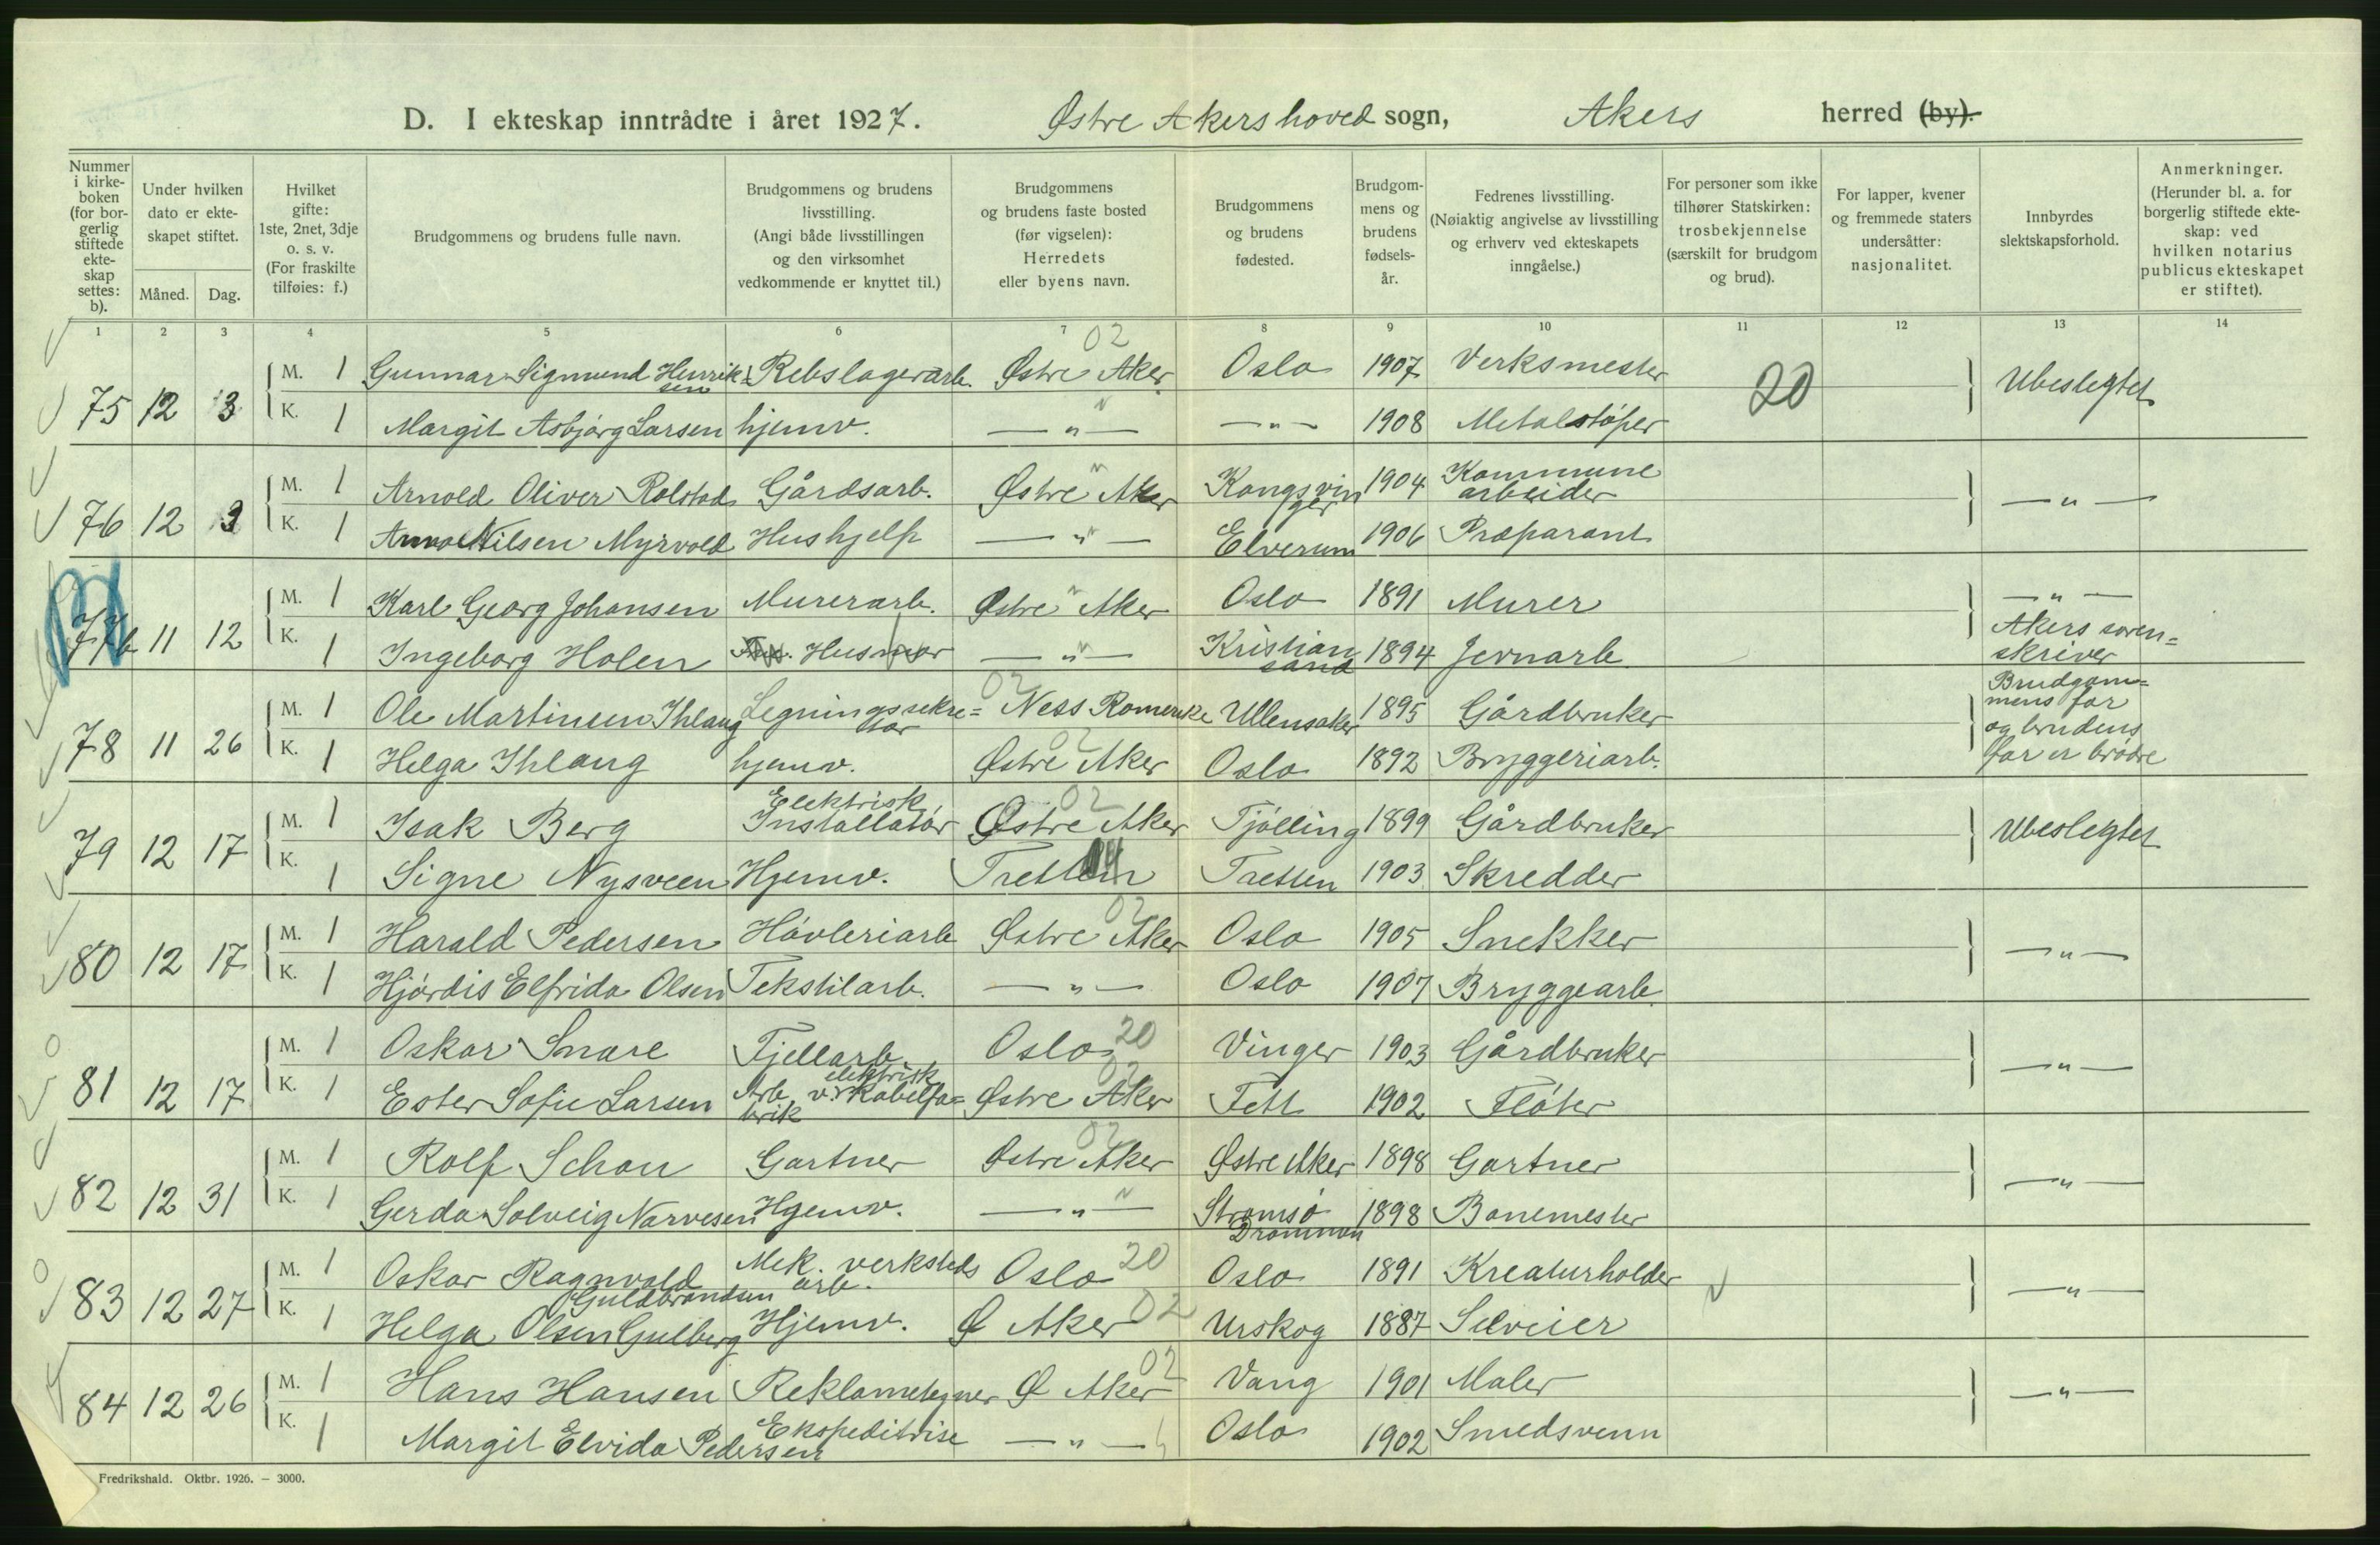 D. I ekteskap inntrådte i året 1927. Østre Akers hoved sogn, Akers herred (by).
Nummer i kirke-boken (for bor-gerlig stiftede ekte-skap settes: b).
Under hvilken dato er ekte-skapet stiftet.
Måned. Dag.
Hvilket gifte: 1ste, 2net, 3dje o. s. v. (For fraskilte tilføies: f.)
Brudgommens og brudens fulle navn.
Brudgommens og brudens livsstilling. (Angi både livsstillingen og den virksomhet vedkommende er knyttet til.)
Brudgommens og brudens faste bosted (før vigselen): Herredets eller byens navn.
Brudgommens og brudens fødested.
Brudgom-mens og brudens fødsels-år.
Fedrenes livsstilling. (Nøiaktig angivelse av livsstilling og erhverv ved ekteskapets inngåelse.)
For personer som ikke tilhører Statskirken: trosbekjennelse (særskilt for brudgom og brud).
For lapper, kvener og fremmede staters undersåtter: nasjonalitet.
Innbyrdes slektskapsforhold.
Anmerkninger. (Herunder bl. a. for borgerlig stiftede ekte-skap: ved hvilken notarius publicus ekteskapet er stiftet).
1 2 3 4 5 6 7 8 9 10 11 12 13 14
02
75 12 3 M. 1 Gunnar Sigmund Henriksen Rebslagerarb. Østre Aker Oslo 1907 Verksmester 20 Ubeslegtet
K. 1 Margit Asbjörg Larsen hjemv. — " — — " — 1908 Metalstöper
76 12 3 M. 1 Arnold Oliver Rolstad Gårdsarb. Østre Aker Kongsvinger 1904 Kommunearbeider — " —
K. 1 Anna Nilsen Myrvold Hushjelp — " — Elverum 1906 Præparant
77b 11 12 M. 1 Karl Georg Johansen Murerarb. Østre Aker Oslo 1891 Murer — " —
K. 1 Ingeborg Holen Husmor — " — Kristiansand 1894 Jernarb. Akers soren=skriver
78 11 26 M. 1 Ole Martinsen Ihlang Legningssekre=tær 02 Ness Romerike Ullensaker 1895 Gårdbruker Brudgom=mens far og brudens far er brödre
K. 1 Helga Ihlang hjemv. Østre Aker 02 Oslo 1892 Bryggeriarb.
79 12 17 M. 1 Isak Berg Elektrisk Installatör Østre Aker 02 Tjölling 1899 Gårdbruker Ubeslegtet
K. 1 Signe Nysveen Hjemv. Tretten Tretten 1903 Skredder
80 12 17 M. 1 Harald Pedersen Hövleriarb Østre Aker 02 Oslo 1905 Snekker — " —
K. 1 Hjördis Elfrida Olsen Tekstilarb. — " — Oslo 1907 Bryggearb.
81 12 17 M. 1 Oskar Snare Fjellarb. Oslo 20 Vinger 1903 Gårdbruker — " —
K. 1 Ester Sofie Larsen Arb. v. elektrisk Kabelfa=brik Østre Aker 02 Fett 1902 Flöter
82 12 31 M. 1 Rolf Schou Gartner Østre Aker 02 Østre Aker 1898 Gartner — " —
K. 1 Gerda Solveig Narvesen Hjemv. — " — Strömsö Drammen 1898 Banemester
83 12 27 M. 1 Oskar Ragnvald Guldbrandsen Mek. verksteds arb. Oslo 20 Oslo 1891 Kreaturholder — " —
K. 1 Helga Olsen Gulberg Hjemv. Ø Aker 02 Urskog 1887 Selveier
84 12 26 M. 1 Hans Hansen Reklametegner Ø Aker 02 Vang 1901 Maler — " —
K. 1 Margit Elvida Pedersen Ekspeditrise — " — Oslo 1902 Smedsvenn
Fredrikshald. Oktbr. 1926. — 3000.